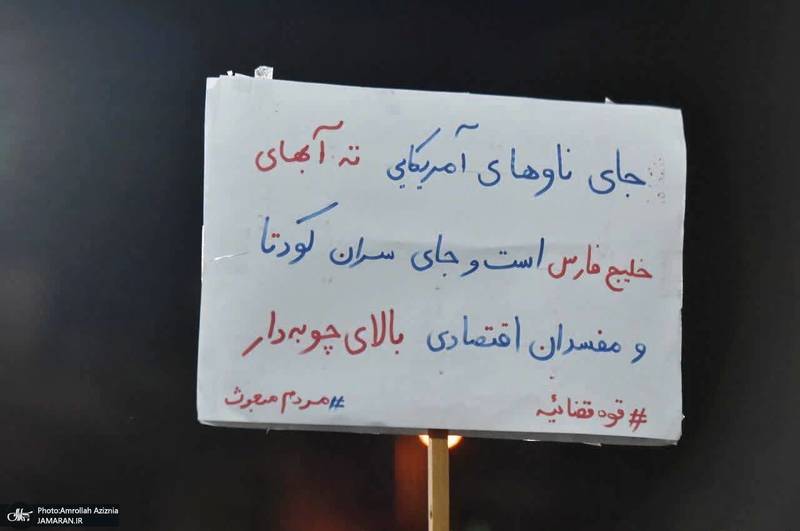 جای ناوهای آمریکایی ته آبهای
خلیج فارس است و جای سران کودتا
و مفسدان اقتصادی بالای چوبه‌دار
#قوه قضائیه #مردم مبعوث
Photo:Amrollah Aziznia
JAMARAN.IR